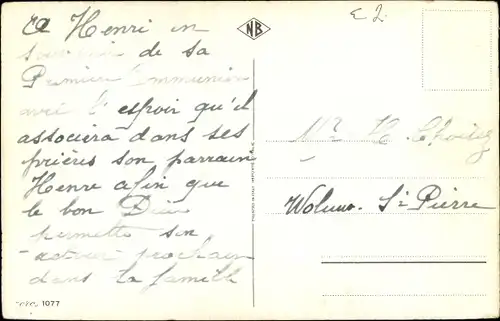 E 2.
NB
A Henri en
souvenir de sa
Première Communion
avec l'espoir qu'il
associera dans ses
prières son parrain
Henre afin que
le bon Dieu
permette son
retour prochain
dans la famille
Mr H.
Woluwe-St Pierre
1077